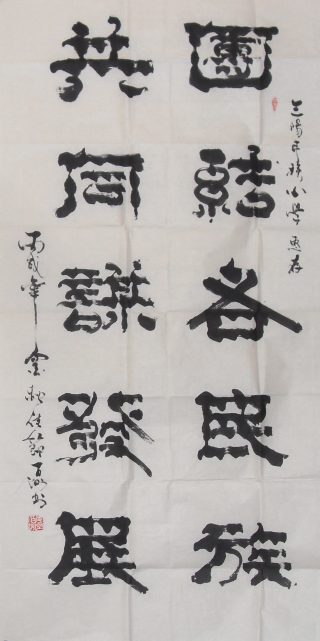 三陽民族小學惠存
團結各民族
共同謀發展
丙戌年 金秋佳節